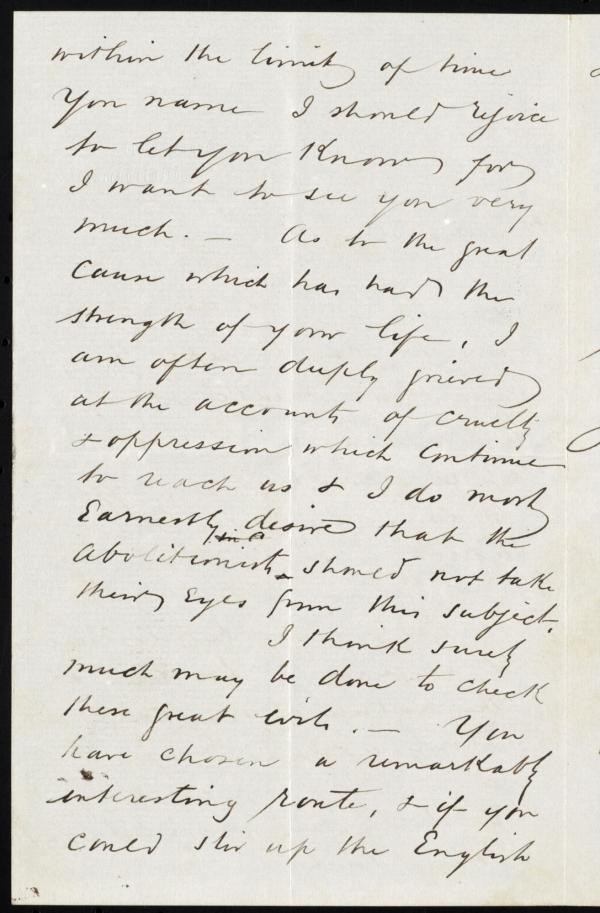 within the limits of time
you name I should rejoice
to let you Know for
I want to see you very
much. — As to the great
Cause which has had the
strength of your life, I
am often deeply grieved
at the accounts of cruelty
& oppression which Continue
to reach us & I do most
Earnestly desire that the
abolitionists should not take
their Eyes from this subject.
I think surely
much may be done to check
these great evils. — You
have chosen a remarkably
interesting route, & if you
could stir up the English